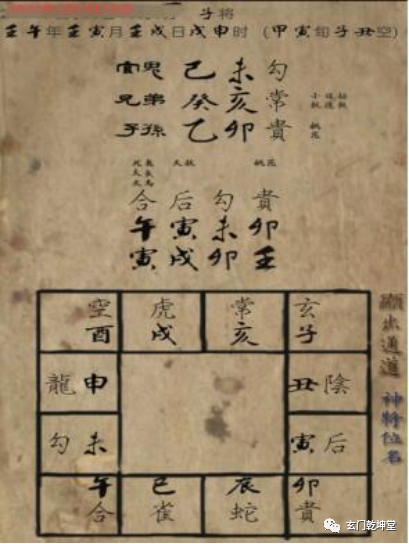 子将
壬午年壬寅月壬戌日戊申时 (甲寅旬子丑空)
官鬼 己 未 勾
兄弟 癸 亥 常
子孫 乙 卯 貴
桃花
桃花
合 后 勾 貴
午 寅 未 卯
寅 戌 卯 壬
空 虎 常 玄
酉 戌 亥 子
龍 申 丑 陰
勾 未 寅 后
午 巳 辰 卯
合 雀 蛇 貴
通道
位名
玄门乾坤堂